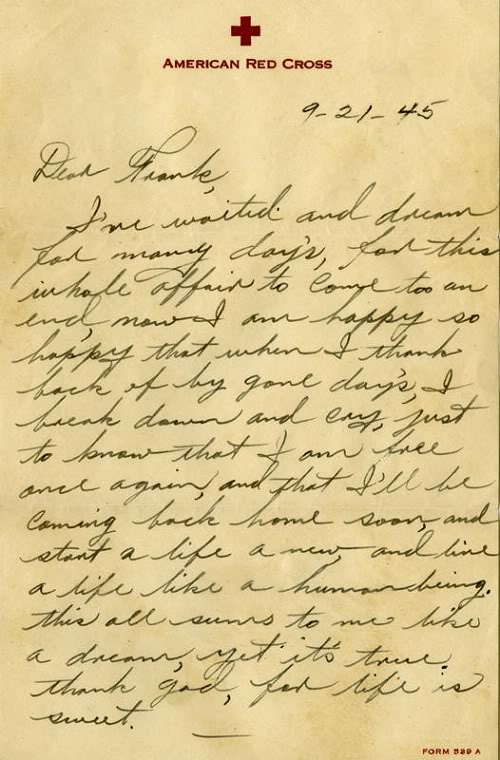 AMERICAN RED CROSS
9-21-45
Dear Frank,
I've waited and dream
for many day's, for this
whole affair to come too an
end, now I am happy so
happy that when I thank
back of by gone day's, I
break down and cry, just
to know that I am free
once again, and that I'll be
coming back home soon, and
start a life a new, and live
a life like a human being.
this all seems to me like
a dream, yet it's true.
thank god, for life is
sweet.
FORM 539 A